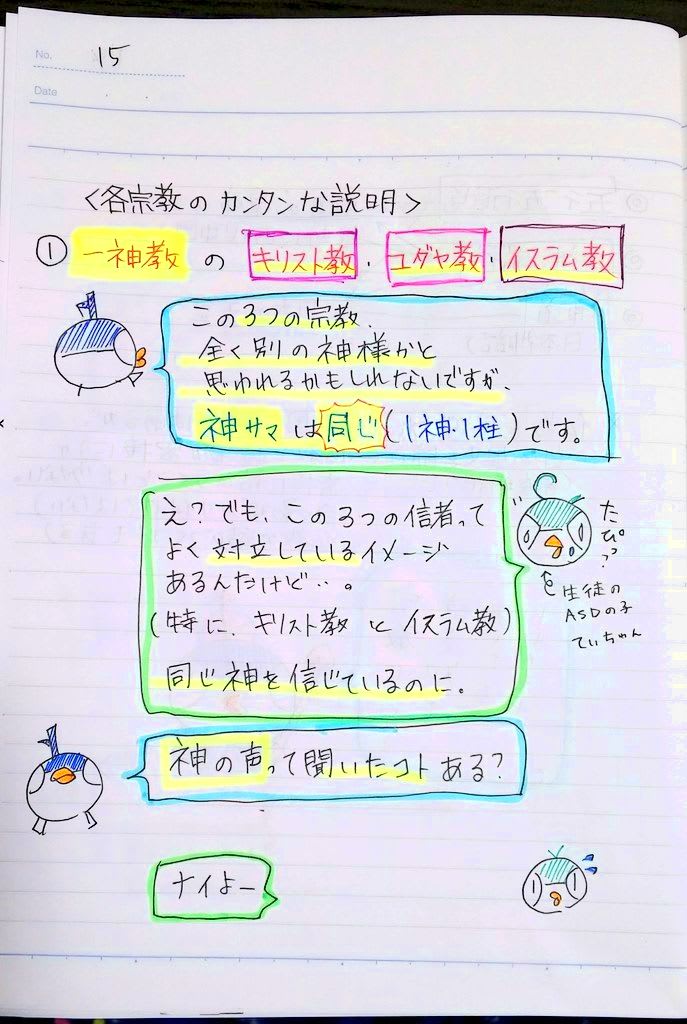 No. 15
Date
<各宗教のカンタンな説明>
① 一神教 の キリスト教・ユダヤ教・イスラム教
この3つの宗教、
全く別の神様かと
思われるかもしれないですが、
神サマは同じ(1神・1柱)です。
え?でも、この3つの信者って
よく対立しているイメージ
あるんだけど…。
(特に、キリスト教とイスラム教)
同じ神を信じているのに。
たぴっ?
生徒の
ASDの子
てぃちゃん
神の声って聞いたコトある?
ナイよー